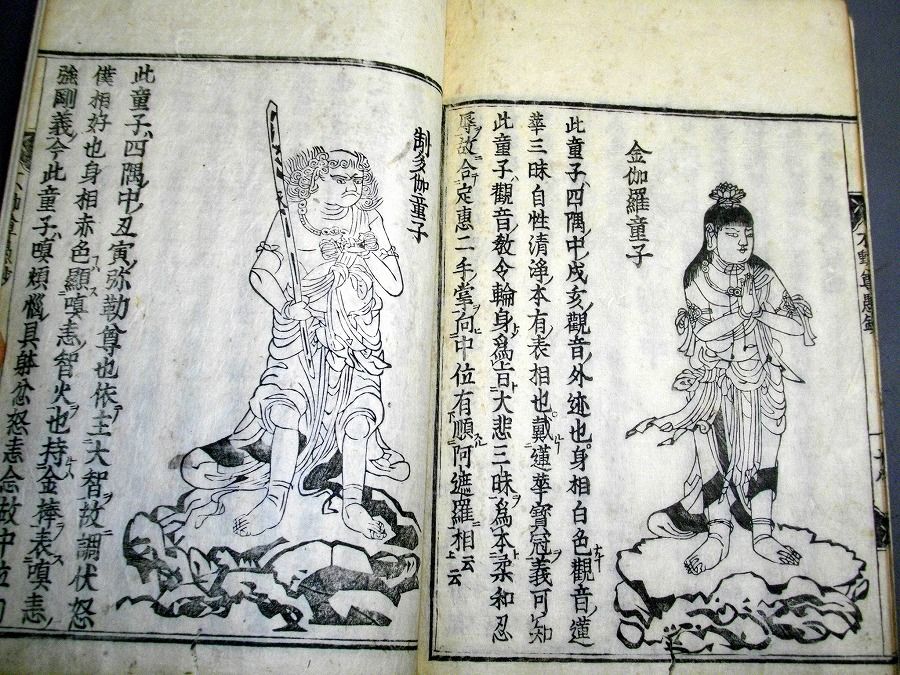 金伽羅童子
此童子ハ四隅中戌亥ノ觀音ノ外迹也身相白色觀音ノ蓮
華三昧自性清淨本有ノ表相也戴蓮華寶冠義可知
此童子ハ觀音教令輪身爲旨大悲三昧爲本柔和忍
辱故合定惠二手掌向中位有順阿遮羅相云云
制多伽童子
此童子ハ四隅中丑寅ノ弥勒尊也依主大智故調伏怒
僕相好也身相赤色顯嗔恚智火也持金棒表嗔恚
強剛義今此童子ハ嗔煩惱具射忿怒恚念故中位